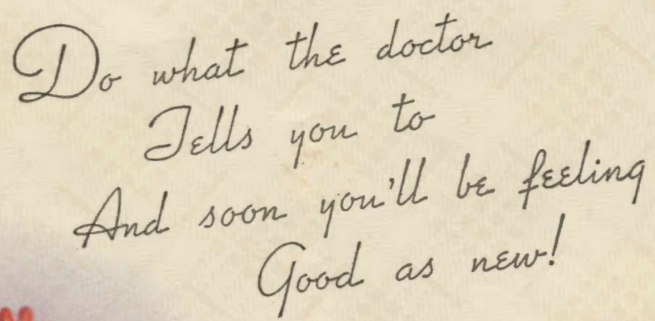 Do what the doctor
Tells you to
And soon you'll be feeling
Good as new!